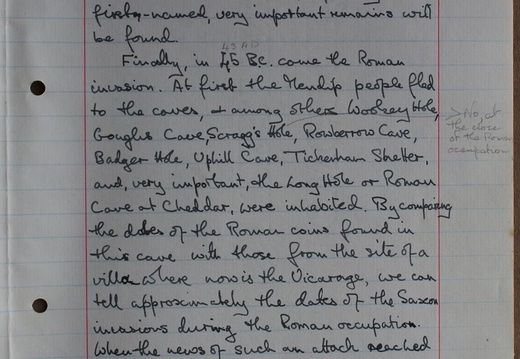 firstly-named, very important remains will
be found.
43 AD
Finally, in 45 B.C. came the Roman
invasion. At first the Mendip people fled
to the caves, & among others Wookey Hole,
Goughs Cave, Scragg's Hole, Rowberrow Cave,
Badger Hole, Uphill Cave, Tickenham Shelter,
and, very important, the Long Hole or Roman
Cave at Cheddar, were inhabited. By comparing
the dates of the Roman coins found in
this cave with those from the site of a
villa where now is the Vicarage, we can
tell approximately the dates of the Saxon
invasions during the Roman occupation.
When the news of such an attack reached
> No, at
the close
of the Roman
occupation